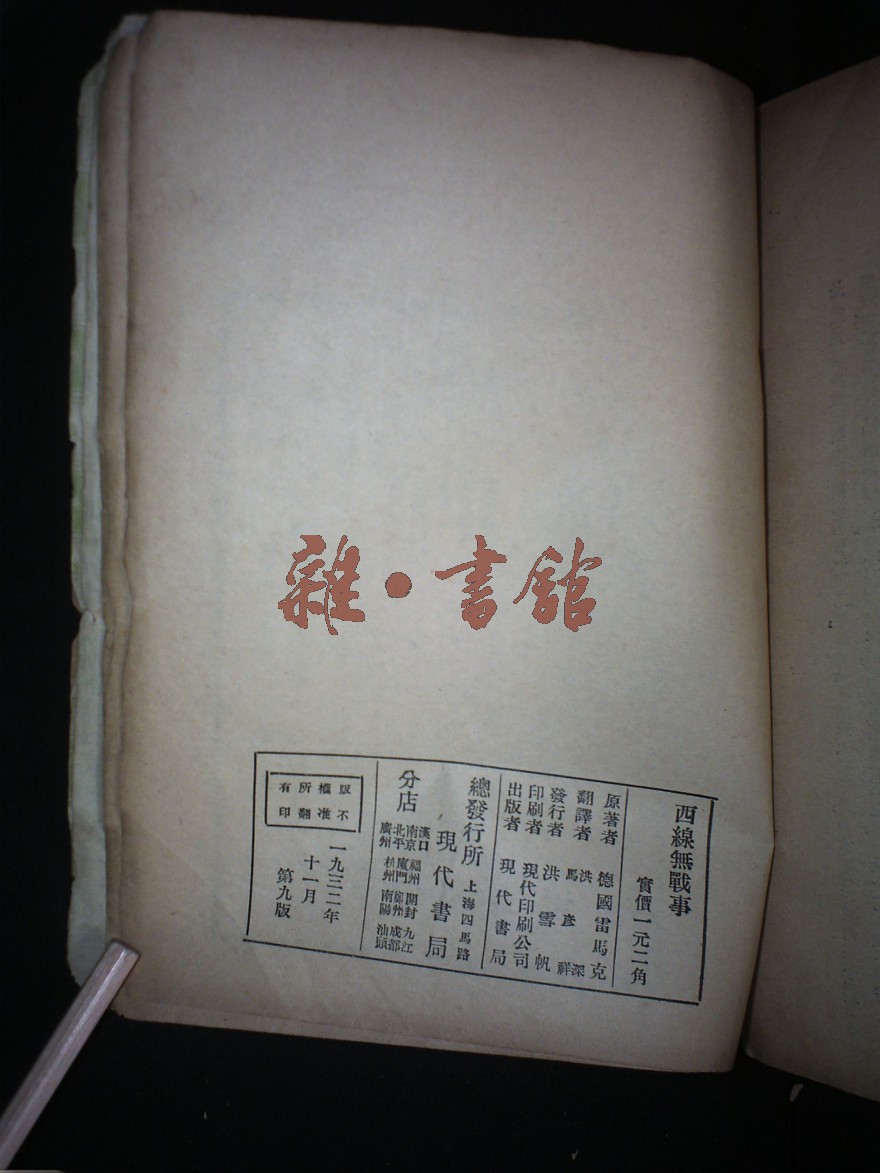 雜·書舘
西線無戰事
實價一元二角
原著者 德國雷馬克
翻譯者 洪深 馬彥祥
發行者 洪雪帆
印刷者 現代印刷公司
出版者 現代書局
總發行所 上海四馬路
現代書局
分店
漢口 福州 開封 九江
南京 廈門 鄭州 成都
北平 杭州 南陽 汕頭
廣州
版權所有
不准翻印
一九三二年
十一月
第九版